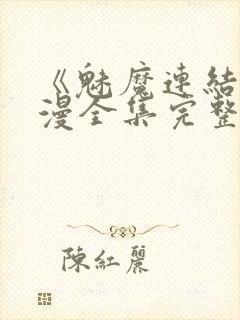 《魅魔連結
漫全集完整
陳紅麗